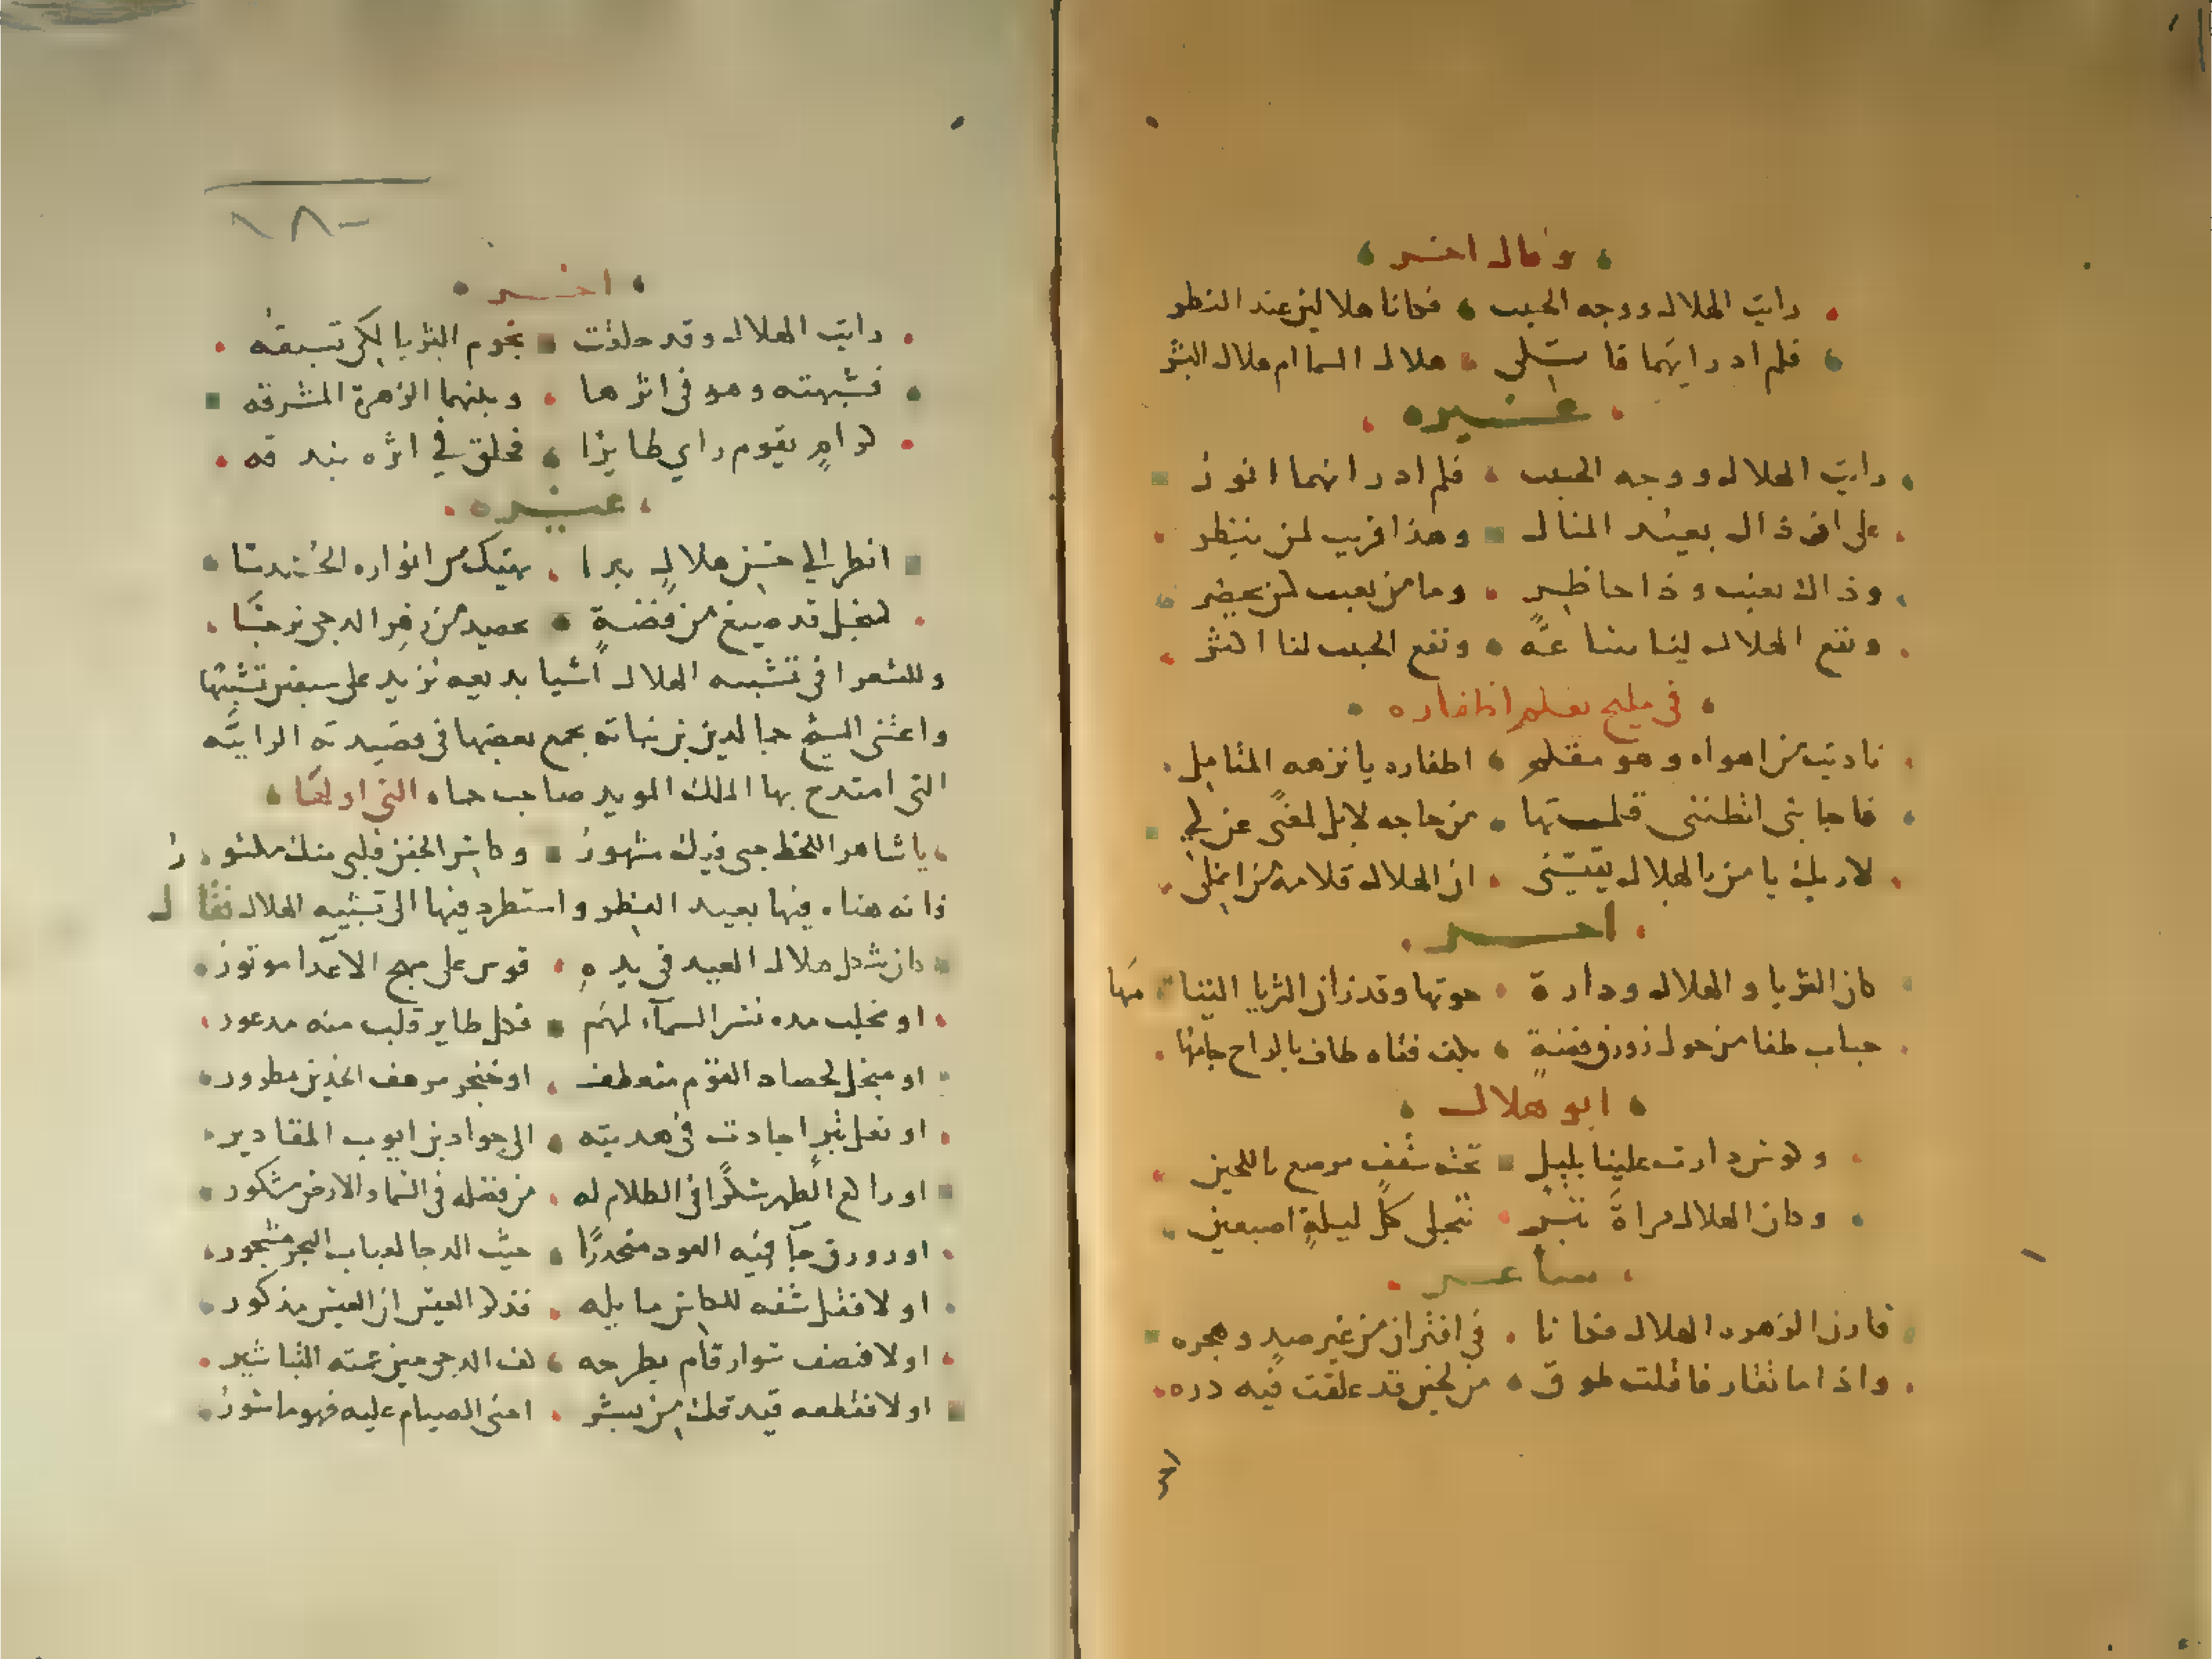 وقال اخر
رايت الهلال ووجه الحبيب فكانا هلالين عند النظر
فلم ادر ايهما قاتلى هلال السما ام هلال البشر
غيره
رايت الهلال ووجه الحبيب فلم ادر ايهما انور
على ان ذاك بعيد المنال وهذا قريب لمن ينظر
وذاك يغيب وذا حاظر وما من يغيب كمن يحضر
ونفع الهلال لينا ساعة ونفع الحبيب لنا اكثر
فى مليح يقلم اظفاره
ناديت من اهواه وهو مقلم اظفاره يا نزهه المتامل
فاجابنى اتظننى قلمتها من حاجه لا بل لمعنى عن لي
لاريك يا من بالهلال يقيسنى ان الهلال قلامة من انملى
اخر
كان الثريا والهلال ودارة حوتها وقد زان الثريا التثامها
حباب طفا من حول زورق فضة بكف فتاه طاف بالراح جامها
ابو هلال
وكوس دارت علينا بليل تحت سقف مرصع باللجين
وكان الهلال مراة تبر تنجلى كل ليلة اصبعين
شاعر
قارن الزهره الهلال فكانا فى اقتران من غير صد وهجره
واذا ما تقارنا قلت طوق من لجين قد علقت فيه دره
١٨٠
اخر
رايت الهلال وقد حلقت نجوم الثريا لكى تسبقه
فشبهته وهو فى اثرها وبينهما الزهرة المشرقه
كرامٍ بقوس راي طايرًا فحلق في اثره بندقه
غيره
انظر الي حسن هلالٍ بدا يهتك من انواره الحندسا
كمنجل قد صيغ من فضةٍ يحصد من زهر الدجى نرجسًا
وللشعرا فى تشبيه الهلال اشيا بديعه تزيد على سبعين تشبيها
واعتنى الشيخ جمالدين بن نباته بجمع بعضها فى قصيدته الرايّه
التى امتدح بها الملك المويد صاحب حماه التى اولها
يا شاهر اللحظ حبى فيك مشهور وكاسر الجفن قلبى منك مكسور
فانه هناه فيها بعيد الفطر واستطرد فيها الى تشبيه الهلال فقال
كان شكل هلال العيد فى يده قوس على مهج الاعدا موتور
او مخلب مده نسر السمآء لهم فكل طاير قلب منه مدعور
او منجل لحصاد القوم منعطف او خنجر مرهف الحدين مطرور
او نعل تبر اجادت فى هديته الى جواد بن ايوب المقادير
او راكع الظهر شكرًا فى الظلام له من فضله فى السما والارض مشكور
او زورق جآ فيه العود منحدرًا حيث الدجا كعباب البحر مسجور
او لا فقل شفه للكاس مايله فذكر العيش ان العيش مذكور
او لا فنصف سوار قام يطرحه كف الدجى حين عمته التباشير
او لا فقطعه قيد فك من بشر اخنى الصيام عليه فهو ماسور